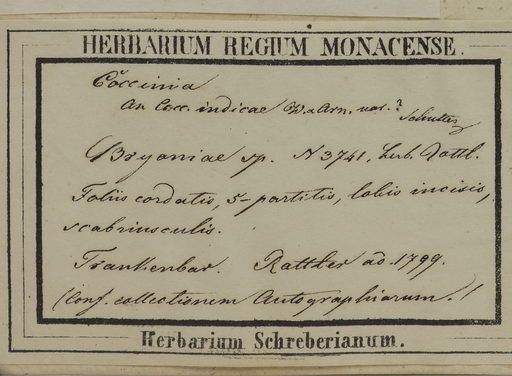 HERBARIUM REGIUM MONACENSE.
Coccinia
An Cocc. indicae W. a Arn. var.?
Schultes
Bryoniae sp. N 3741, herb. Rottl.
Foliis cordatis, 5-partitis, lobis incisis,
scabriusculis.
Trankenbar. Rottler ad. 1799.
(Conf. collectionem Autographiarum.)
Herbarium Schreberianum.